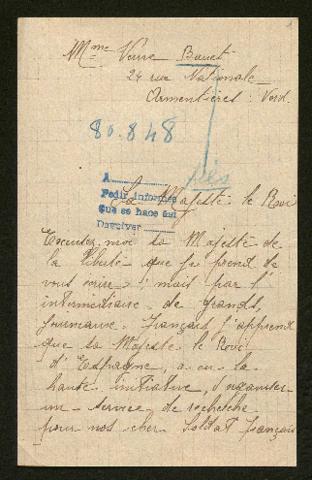 Mme Veuve Bauet
24 rue Nationale
Armentières : Nord.
80.848
A
Pedir informes
Que se hace así
Devolver
Sa Majesté le Roi
Excusez, moi sa Majesté de
la liberté que je prend de
vous écrire ! mais par l'
intermédiaire de grands
journaux Français j'apprend
que sa Majesté le Roi
d'Espagne, a eu la
haute initiative, d'organiser
un service, de recherche
pour nos cher Soldat français